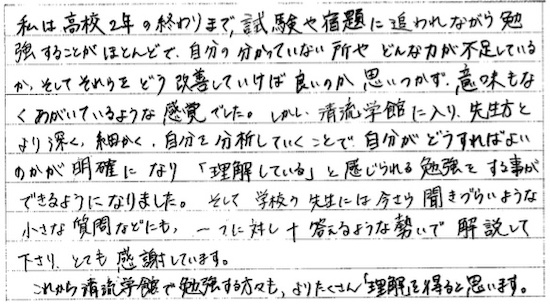 私は高校2年の終わりまで、試験や宿題に追われながら勉
強することがほとんどで、自分の分かっていない所やどんな力が不足している
か、そしてそれらをどう改善していけば良いのか思いつかず、意味もな
くあがいているような感覚でした。しかし、清流学館に入り、先生方と
より深く、細かく、自分を分析していくことで、自分がどうすればよい
のかが明確になり「理解している」と感じられる勉強をする事が
できるようになりました。そして学校の先生には今さら聞きづらいような
小さな質問などにも、一つに対し十答えるような勢いで解説して
下さり、とても感謝しています。
これから清流学館で勉強する方々も、よりたくさん「理解」を得ると思います。